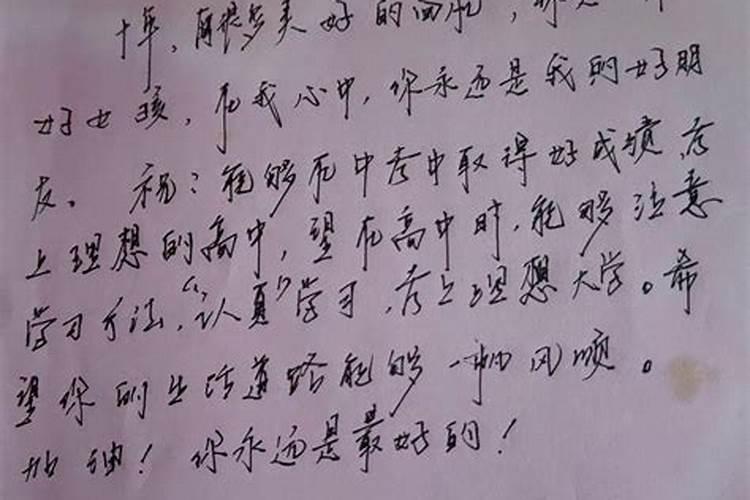 十年，有很多美好的回忆，你是一个
好女孩，在我心中，你永远是我的好朋
友。祝：能够在中考中取得好成绩，考
上理想的高中，望在高中时，能够注意
学习方法，“认真”学习，考上理想大学。希
望你的生活道路能够一帆风顺。
加油！你永远是最好的！